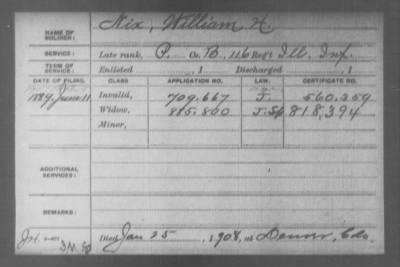 NAME OF SOLDIER: Nix, William H.
SERVICE: Late rank, P. Co. B, 116 Reg't Ill. Inf.
TERM OF SERVICE: Enlisted , 1 Discharged , 1
DATE OF FILING. CLASS. APPLICATION NO. LAW. CERTIFICATE NO.
1889, June 11 Invalid, 709.667 J. 560.359
Widow, 885.800 818,394
Minor,
ADDITIONAL SERVICES:
REMARKS:
Died Jan 25, 1908, at Denver, Colo.